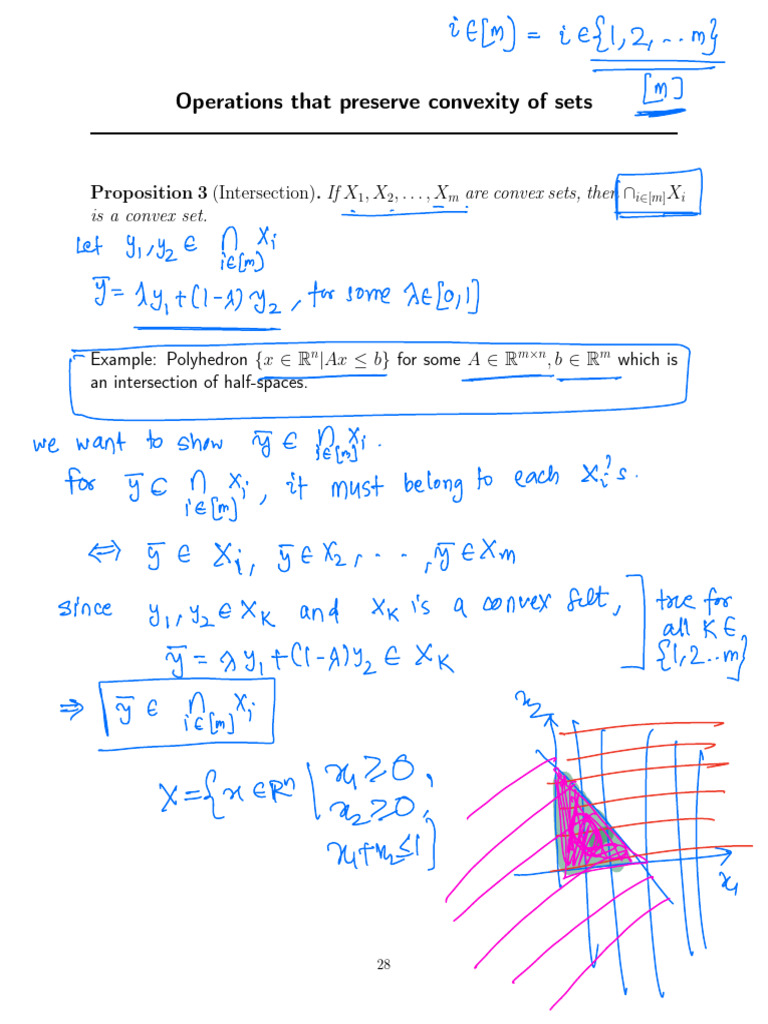 i∈[m] = i∈{1,2,..m}
[m]
Operations that preserve convexity of sets
Proposition 3 (Intersection). If X₁, X₂, . . . , Xₘ are convex sets, then ∩_{i∈[m]}X_i
is a convex set.
Let y₁,y₂ ∈ ∩_{i∈[m]} X_i
ȳ = λy₁+(1-λ)y₂, for some λ∈[0,1]
Example: Polyhedron {x ∈ ℝⁿ|Ax ≤ b} for some A ∈ ℝ^{m×n}, b ∈ ℝᵐ which is
an intersection of half-spaces.
we want to show ȳ ∈ ∩_{i∈[m]} X_i.
for ȳ ∈ ∩_{i∈[m]} X_i, it must belong to each X_i's.
⇔ ȳ ∈ X_i, ȳ ∈ X₂, . . . , ȳ ∈ Xₘ
since y₁,y₂ ∈ X_K and X_K is a convex set,
ȳ = λy₁+(1-λ)y₂ ∈ X_K
true for
all K∈
{1,2..m}
⇒ ȳ ∈ ∩_{i∈[m]} X_i
X = {x ∈ ℝⁿ | x₁ ≥ 0,
x₂ ≥ 0,
x₁+x₂ ≤ 1}
x₂
x₁
28